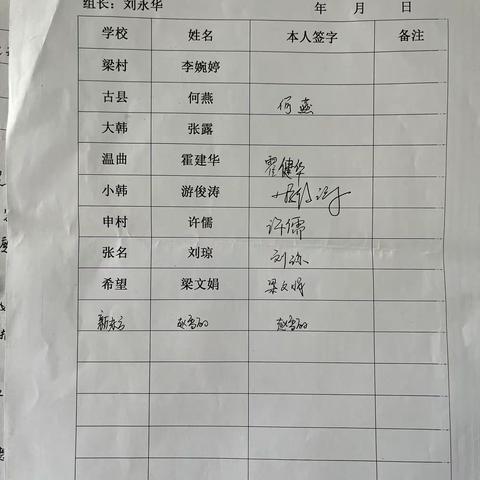 组长：刘永华 年 月 日
学校 姓名 本人签字 备注
梁村 李婉婷
古县 何燕 何燕
大韩 张露
温曲 霍建华 霍健华
小韩 游俊涛
申村 许儒 许儒
张名 刘琼 刘琼
希望 梁文娟 梁文娟